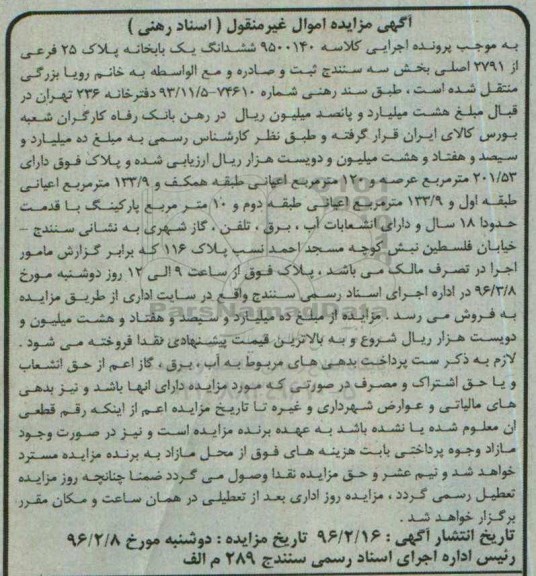 آگهی مزایده اموال غیرمنقول ( اسناد رهنی )
به موجب پرونده اجرایی کلاسه ۹۵۰۰۱۴۰ ششدانگ یک بابخانه پلاک ۲۵ فرعی
از ۲۷۹۱ اصلی بخش سه سنندج ثبت و صادره و مع الواسطه به خانم رویا بزرگی
منتقل شده است ، طبق سند رهنی شماره ۷۴۶۱۰-۹۳/۱۱/۵ دفترخانه ۲۳۶ تهران در
قبال مبلغ هشت میلیارد و پانصد میلیون ریال در رهن بانک رفاه کارگران شعبه
بورس کالای ایران قرار گرفته و طبق نظر کارشناس رسمی به مبلغ ده میلیارد و
سیصد و هفتاد و هشت میلیون و دویست هزار ریال ارزیابی شده و پلاک فوق دارای
۲۰۱/۵۳ مترمربع عرصه و ۱۲۰ مترمربع اعیانی طبقه همکف و ۱۳۳/۹ مترمربع اعیانی
طبقه اول و ۱۳۳/۹ مترمربع اعیانی طبقه دوم و ۱۰ متر مربع پارکینگ با قدمت
حدودا ۱۸ سال و دارای انشعابات آب ، برق ، تلفن ، گاز شهری به نشانی سنندج –
خیابان فلسطین نبش کوچه مسجد احمد نسب پلاک ۱۱۶ که برابر گزارش مامور
اجرا در تصرف مالک می باشد ، پلاک فوق از ساعت ۹ الی ۱۲ روز دوشنبه مورخ
۹۶/۳/۸ در اداره اجرای اسناد رسمی سنندج واقع در سایت اداری از طریق مزایده
به فروش می رسد . مزایده از مبلغ ده میلیارد و سیصد و هفتاد و هشت میلیون و
دویست هزار ریال شروع و به بالاترین قیمت پیشنهادی نقدا فروخته می شود .
لازم به ذکر ست پرداخت بدهی های مربوط به آب ، برق ، گاز اعم از حق انشعاب
و یا حق اشتراک و مصرف در صورتی که مورد مزایده دارای آنها باشد و نیز بدهی
های مالیاتی و عوارض شهرداری و غیره تا تاریخ مزایده اعم از اینکه رقم قطعی
ان معلوم شده یا نشده باشد به عهده برنده مزایده است و نیز در صورت وجود
مازاد وجوه پرداختی بابت هزینه های فوق از محل مازاد به برنده مزایده مسترد
خواهد شد و نیم عشر و حق مزایده نقدا وصول می گردد ضمنا چنانچه روز مزایده
تعطیل رسمی گردد ، مزایده روز اداری بعد از تعطیلی در همان ساعت و مکان مقرر
برگزار خواهد شد .
تاریخ انتشار آگهی : ۹۶/۲/۱۶ تاریخ مزایده : دوشنبه مورخ ۹۶/۲/۸
رئیس اداره اجرای اسناد رسمی سنندج ۲۸۹ م الف
ParsNamadData